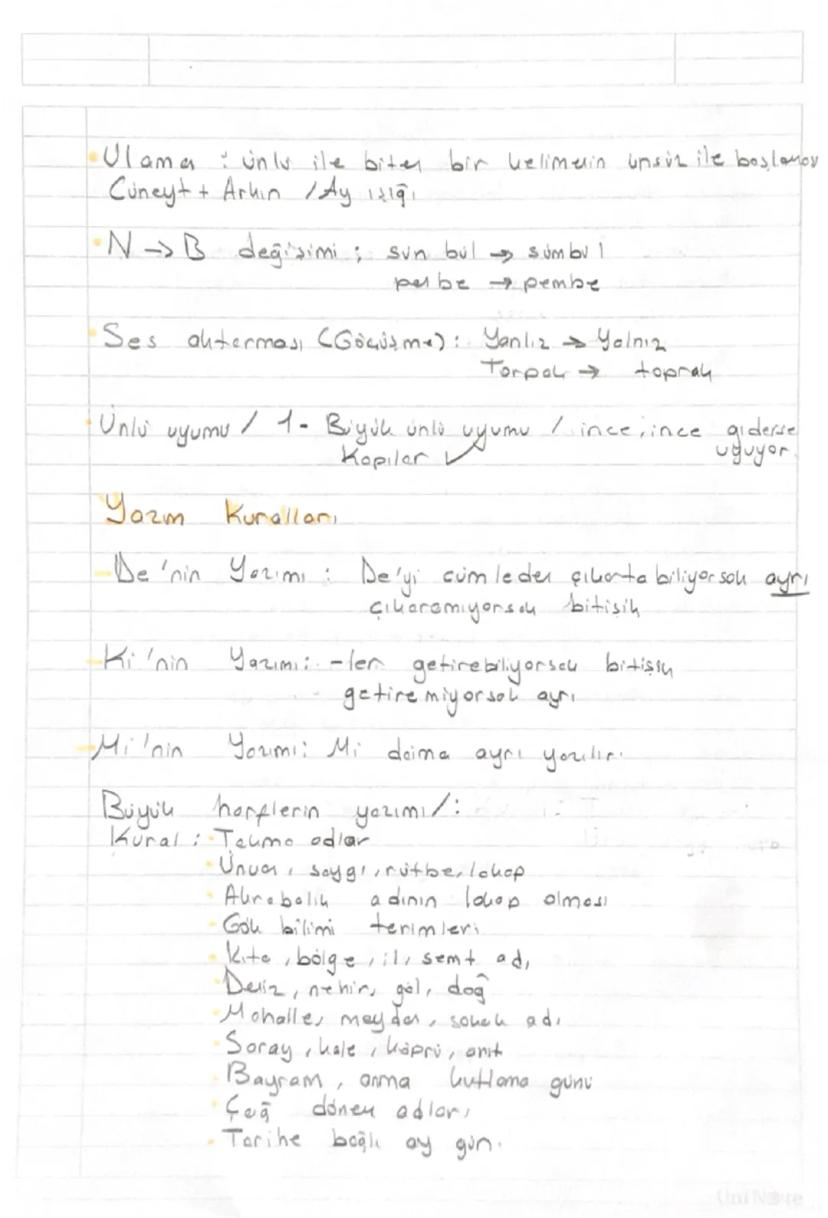 Ulama : ünlü ile biten bir kelimenin ünsüz ile başlaması
Cüneyt + Arkın / Ay ışığı
N → B değişimi ; sun bul → sümbül
penbe → pembe
Ses aktarması (Göçüşme) : Yanlız → Yalnız
Torpak → toprak
Ünlü uyumu / 1 - Büyük ünlü uyumu / ince, ince giderse
Kapılar ✓ uyuyor.
Yazım Kuralları
De'nin Yazımı : De'yi cümleden çıkartabiliyorsak ayrı
çıkaramıyorsak bitişik
Ki'nin Yazımı : -ler getirebiliyorsak bitişik
getiremiyorsak ayrı
Mi'nin Yazımı : Mi daima ayrı yazılır.
Büyük harflerin yazımı / :
Kural : Takma adlar
Ünvan, saygı, rütbe, lakap
Akrabalık adının lakap olması
Gök bilimi terimleri
Kıta, bölge, il, semt adı
Deniz, nehir, göl, dağ
Mahalle, meydan, sokak adı
Saray, kale, köprü, anıt
Bayram, anma kutlama günü
Çağ dönem adları
Tarihe bağlı ay gün.
UniNote